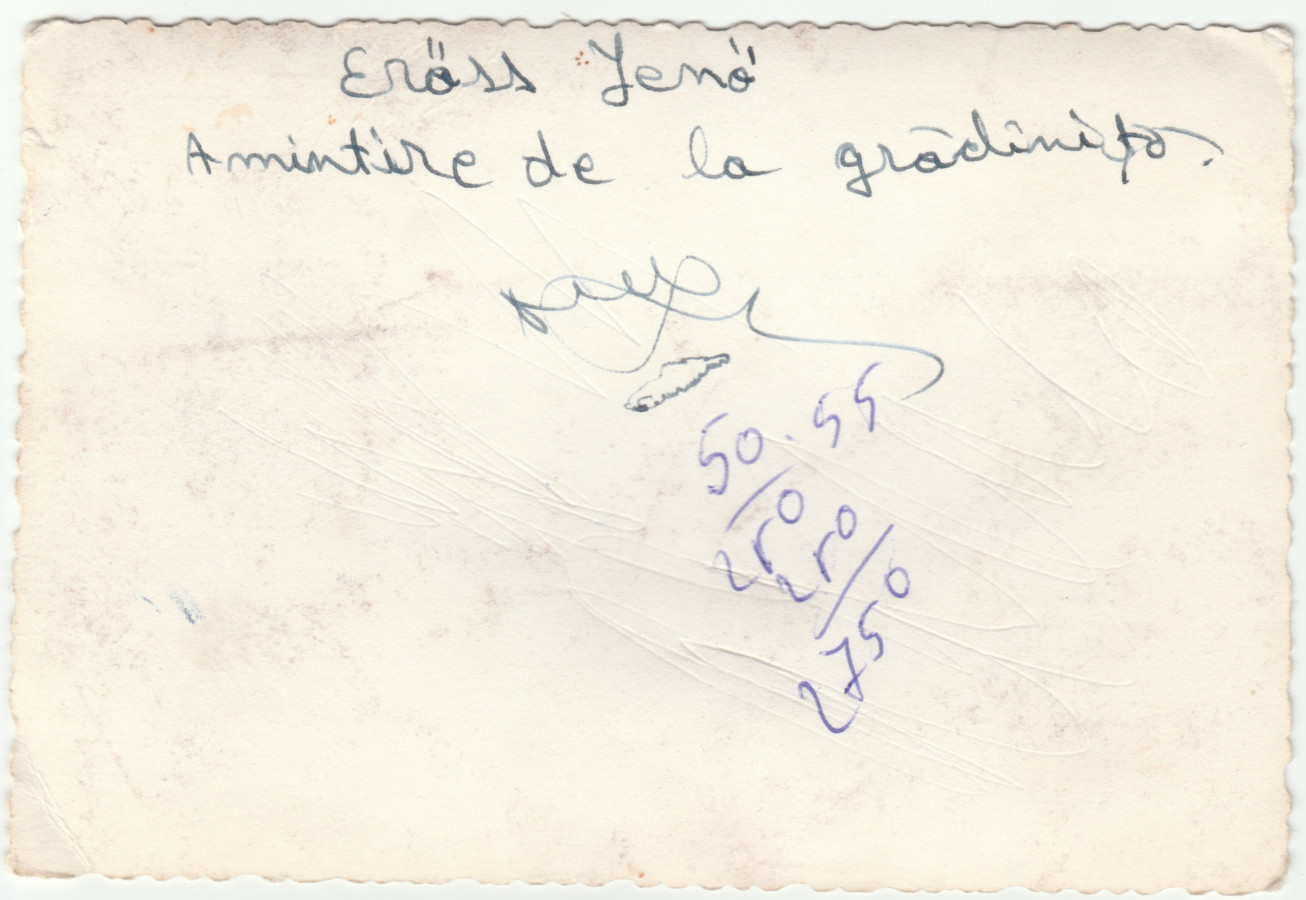 Erőss Jenő
Amintire de la grădiniță.
50.55
250
250
2750